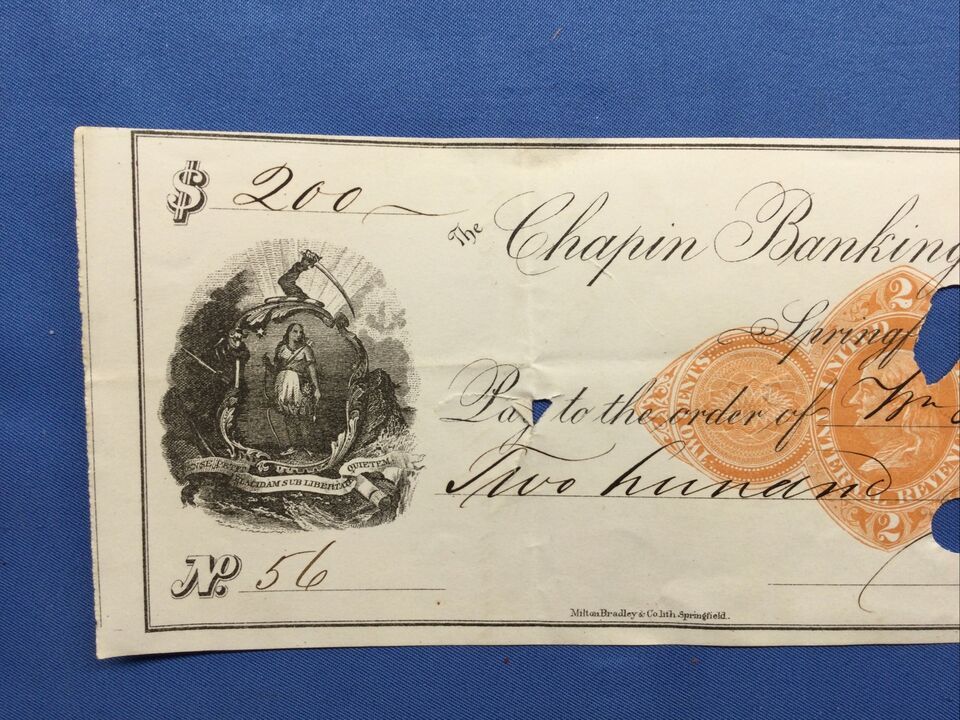 $ 200
The Chapin Banking
Springf
Pay to the order of Wm
Two hundred
ENSE PETIT PLACIDAM SUB LIBERTATE QUIETEM
TWO CENTS
2
INTERNAL REVENUE
2
No. 56
Milton Bradley & Co. Lith. Springfield.